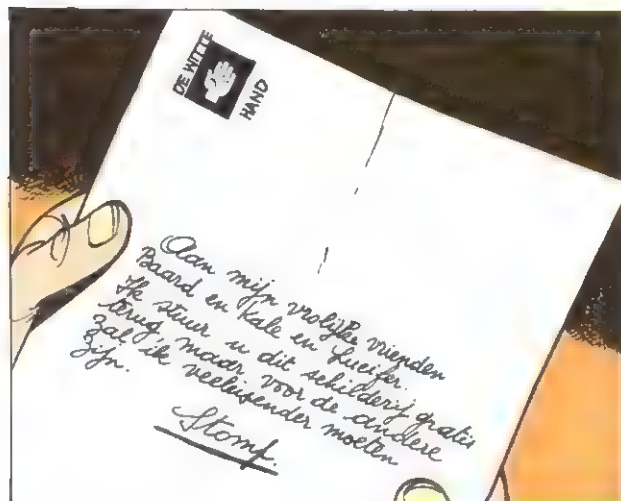 DE WITTE
HAND
Aan mijn vrolijke vrienden
Baard en Kale en Lucifer.
Ik stuur u dit schilderij gratis
terug, maar voor de andere
zal ik veeleisender moeten
zijn.
Stomp.